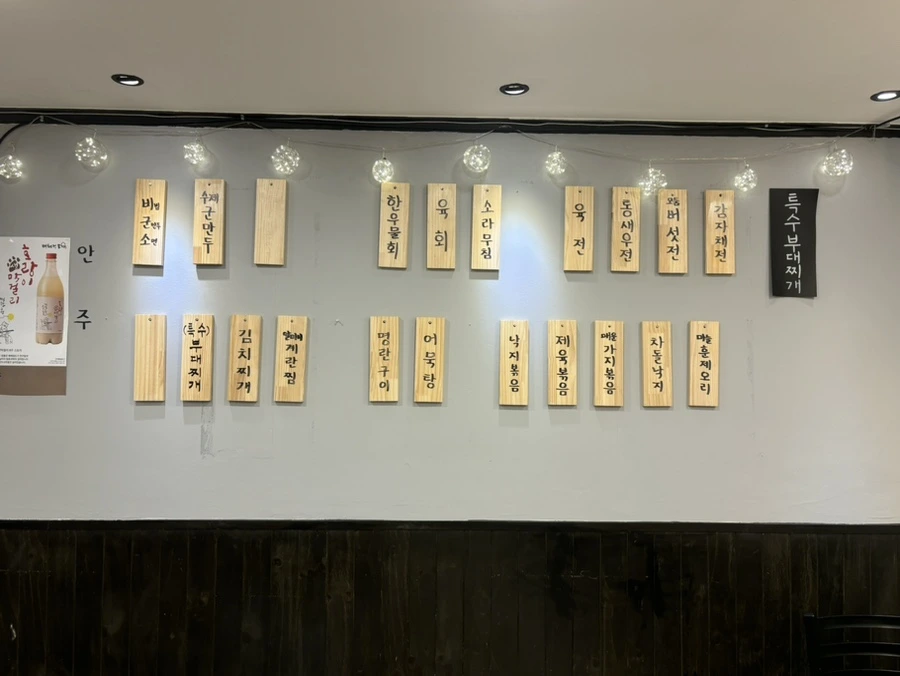 안주
비빔
군만두
소면
수제
군만두
한우물회
육회
소라무침
육전
통새우전
모듬
버섯전
감자채전
특수부대찌개
호랑이
막걸리
(특수)
부대찌개
김치찌개
계란찜
명란구이
어묵탕
낙지볶음
제육볶음
매운
가지볶음
차돌낙지
마늘
훈제오리